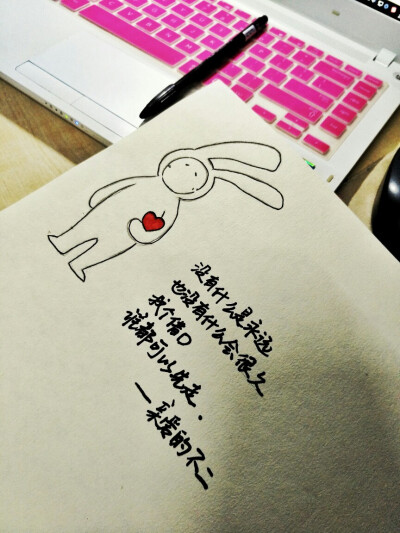 没有什么是永远
也没有什么会很久
找个借口
谁都可以先走.
—亲爱的不二